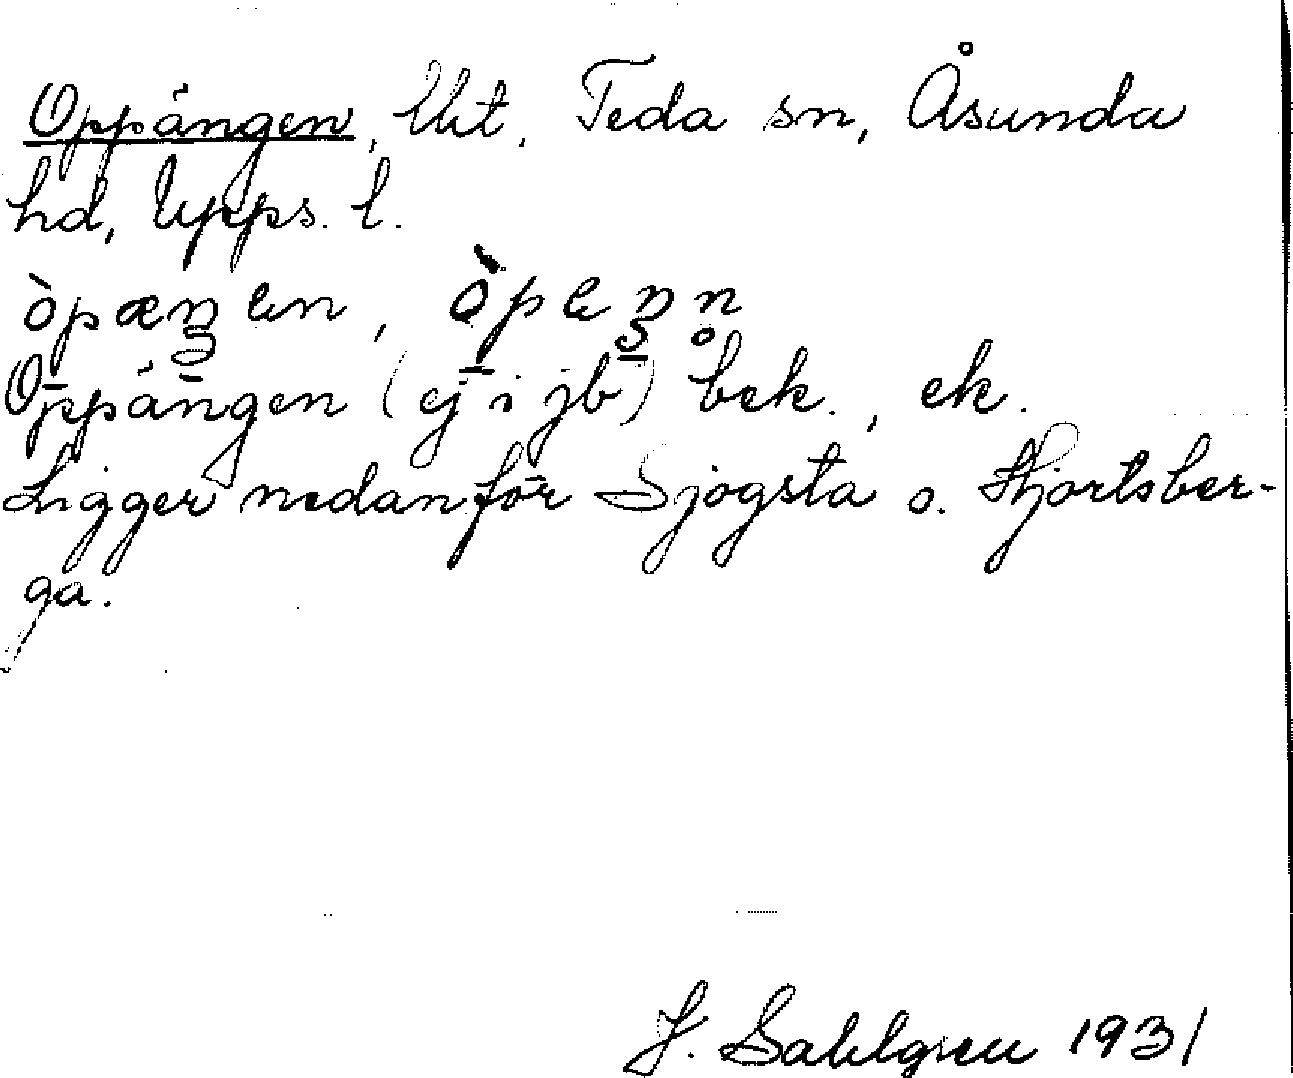 Oppängen, Utt. Teda sn, Åsunda
hd, Upps. l.
òpæŋ en, òpeŋn̥
Oppängen (ej i jb) bek., ek.
Ligger nedanför Sjögsta o. Hjortsber-
ga.
J. Sahlgren 1931